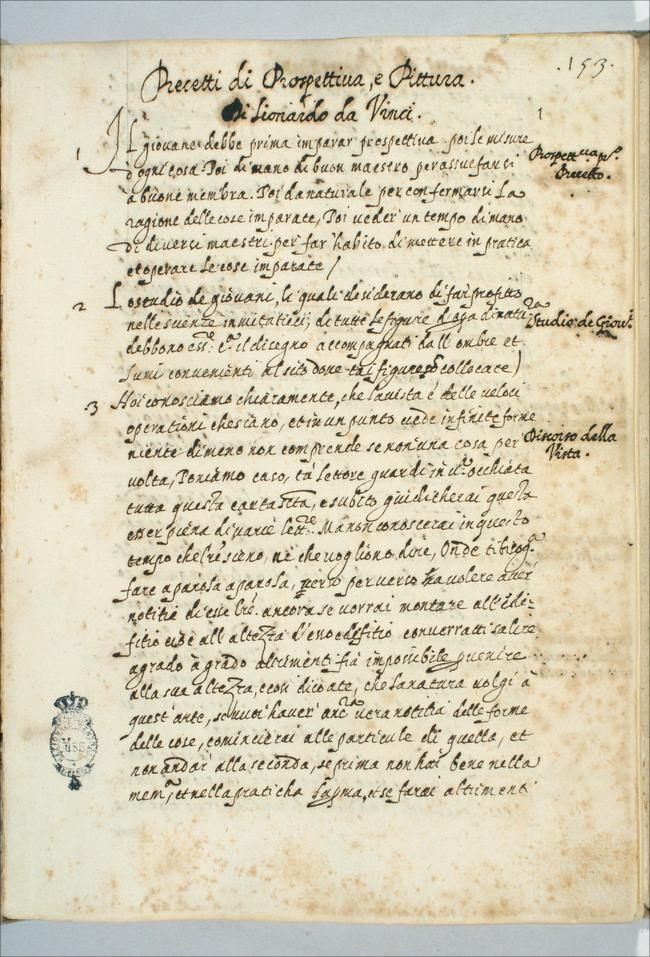 .153.
Precetti di Prospettiva, e Pittura.
Di Lionardo da Vinci.
1
1 IL giovane debbe prima imparar prospettiva. poi le misure
d'ogni cosa. Poi di mano di buon maestro per assuefarsi
à buone membra. Poi da naturale per confermarsi La
ragione delle cose imparate, Poi veder un tempo di mano
di diversi maestri. per far habito di mettere in pratica
et operare le cose imparate /
Prospettiva po.
Precetto.
2 Lo studio de giovani, li quali desiderano di far profitto
nelle scienze di tutte le figure
debbono ess. il disegno accompagnati dall ombre et
lumi convenienti al sito dove tai figure so collocate)
Studio de Giov.
3 Noi conosciamo chiaramente, che la vista è delle veloci
operationi che siano, et in un punto vede infinite forme
niente di meno non comprende se non una cosa per
volta, Poniamo caso, tu Lettore guardi in una occhiata
tutta questa carta scritta, e subito giudicherai questa
esser piena di varie lettre. Ma non conoscerai in questo
tempo che lre sieno, ne che vogliono dire, Onde ti bisog.a
fare a parola a parola, per verso ha volere aver
notitia di esse lre. ancora se vorrai montare all'edi-
fitio converratti salire
à grado à grado altrimenti fia impossibile pvenire
alla sua altezza, e così dico à te, che la natura volgi à
quest'arte, se vuoi haver vera notitia delle forme
delle cose, comincierai alle particule di quella, et
non andar alla seconda, se prima non hai bene nella
mem.a et nella praticha la pma, et se farai altrimenti
Discorso della
Vista.